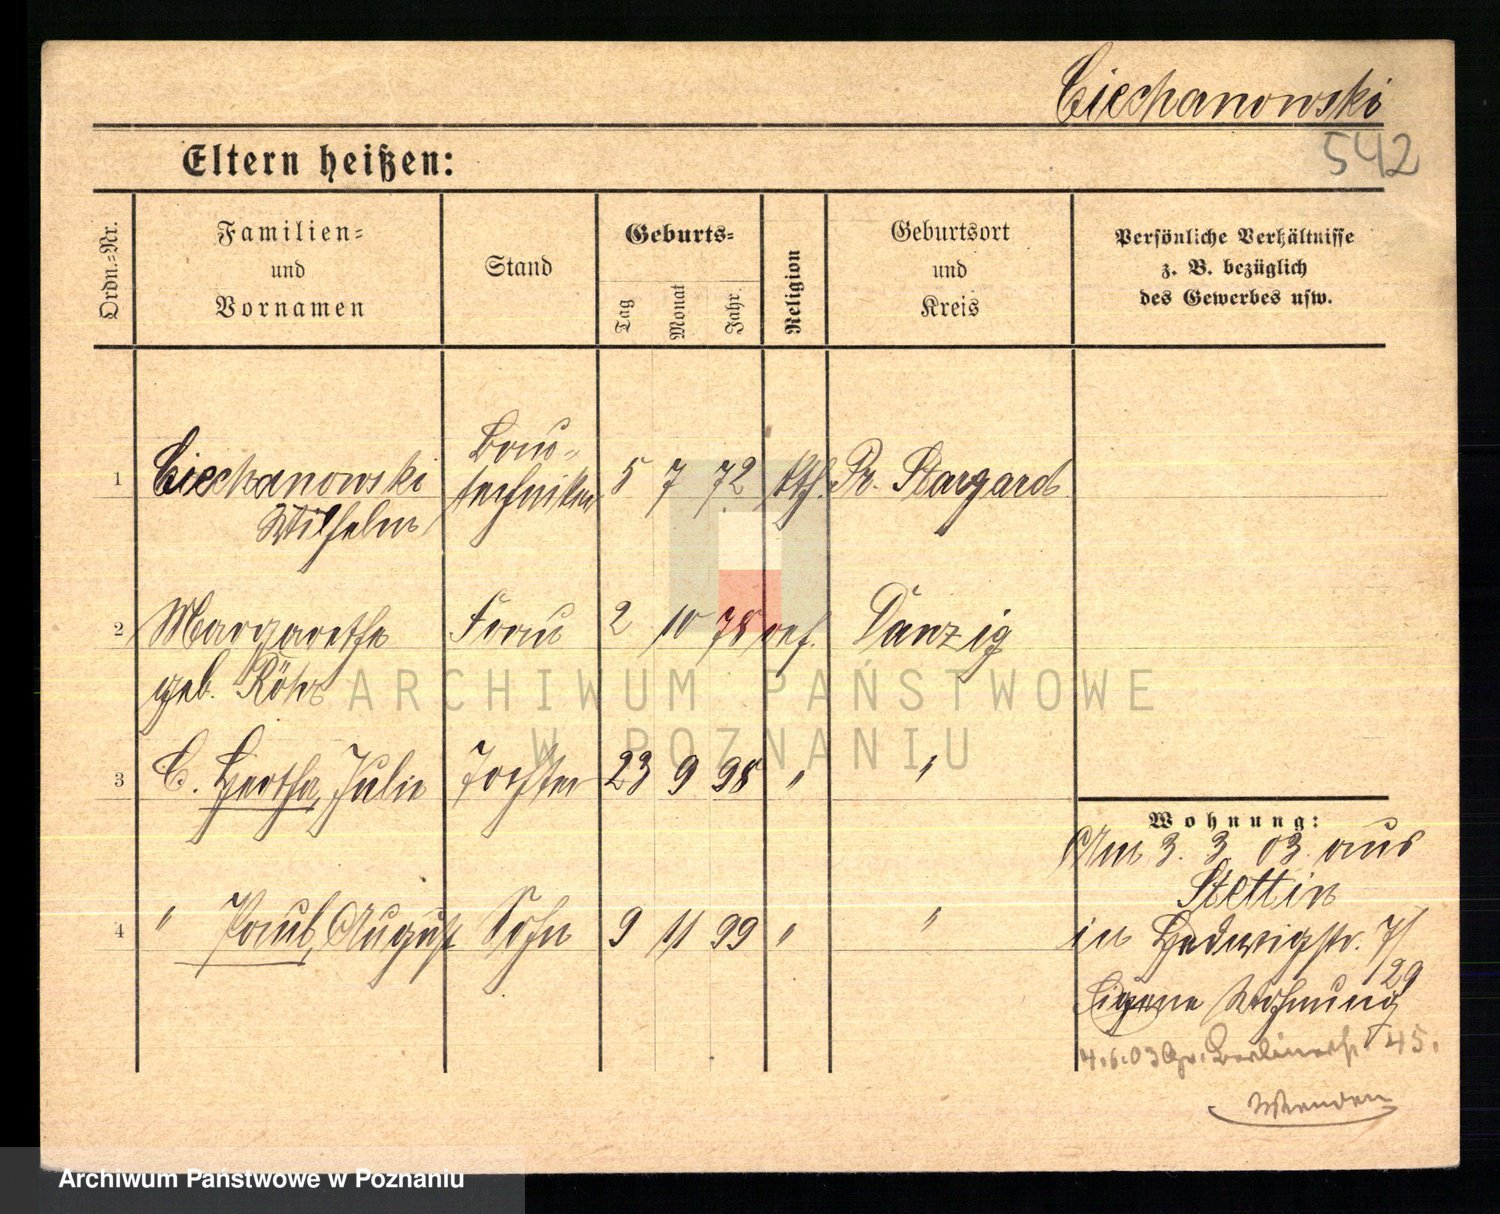 Ciechanowski
542
Eltern heißen:
Ordn.-Nr.
Familien-
und
Vornamen
Stand
Geburts-
Tag
Monat
Jahr
Religion
Geburtsort
und
Kreis
Persönliche Verhältnisse
z. B. bezüglich
des Gewerbes usw.
1 Ciechanowski Bau- 5 7 72 kth. Pr. Stargard
Wilhelm techniker
2 Margarethe Frau 2 10 78 ref. Danzig
geb. Röhr
3 C. Hertha, Julie Tochter 23 9 98 " "
4 " Paul, August Sohn 9 11 99 " "
Wohnung:
Am 3. 3 03. aus
Stettin
in Hedwigstr. 7/
29
Eigene Wohnung
4.6.03 Gr. Berlinerstr. 45.
Wenden
ARCHIWUM PAŃSTWOWE
W POZNANIU
Archiwum Państwowe w Poznaniu